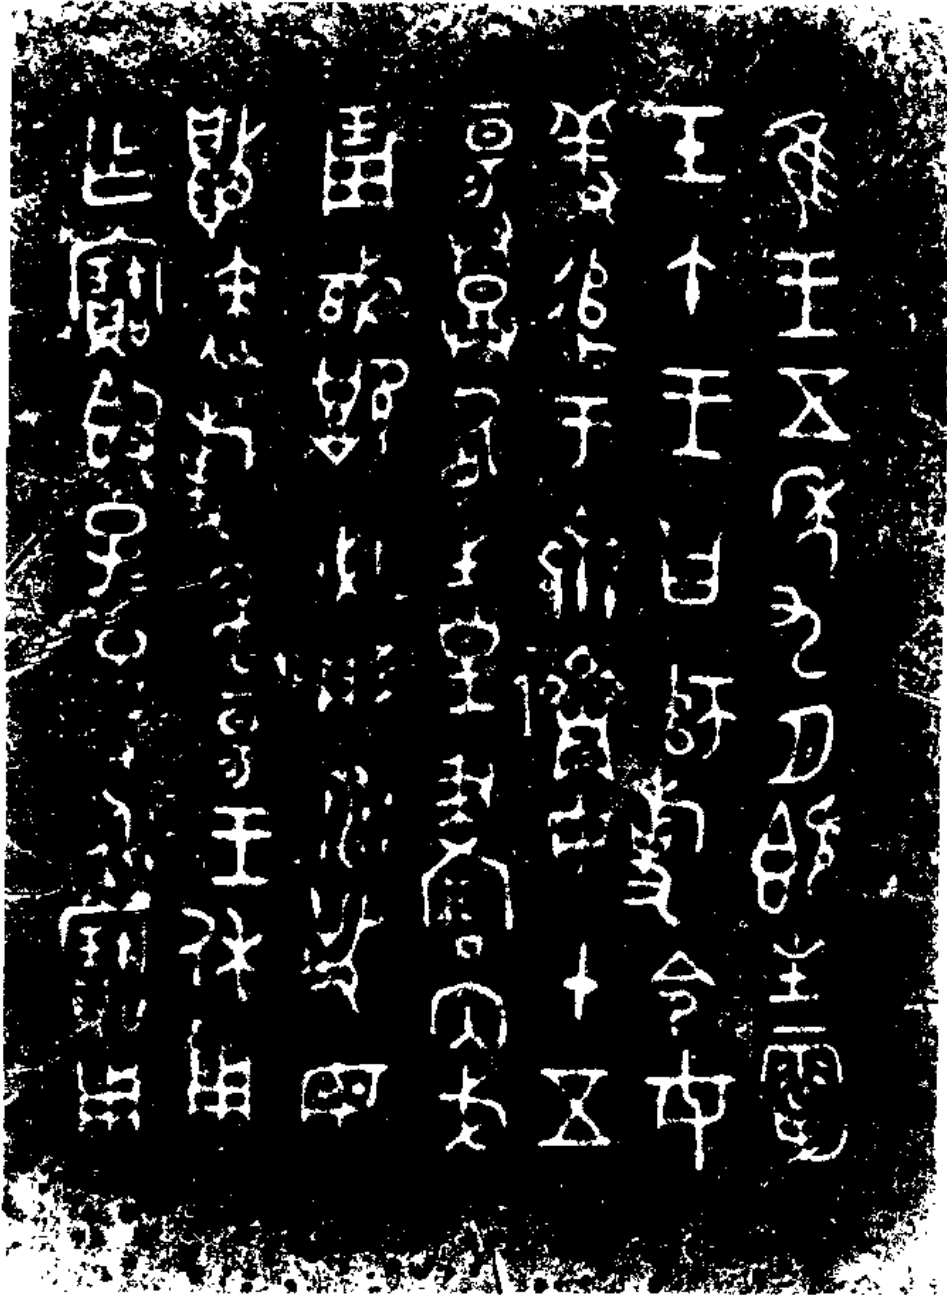 隹王五年九月既生霸
壬午王曰師旋令女
羞追于齊儕女毌五
昜登盾生皇畫內戈
琱㦸厚必彤沙敬毋
敗速旋敢昜王休用
乍寶簋子＝孫＝永寶用